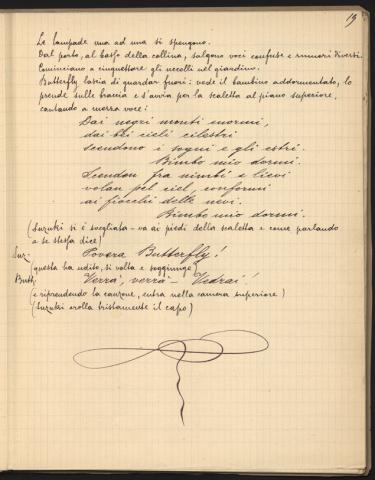 19
Le lampade una ad una si spengono.
Dal porto, al basso della collina, salgono voci confuse e rumori diversi.
Cominciano a cinguettare gli uccelli nel giardino.
Butterfly lascia di guardar fuori: vede il bambino addormentato, lo
prende sulle braccia e s'avvia per la scaletta al piano superiore,
cantando a mezza voce:
Dai negri monti enormi,
dai bei cieli cilestri
scendono i sogni e gli estri.
Bimbo mio dormi.
Scendon fra nimbi e lievi
volan pel ciel, conformi
ai fiocchi delle nevi.
Bimbo mio dormi.
(Suzuki si è svegliata - va ai piedi della scaletta e come parlando
a se stessa dice)
Suz: Povera Butterfly!
(questa ha udito, si volta e soggiunge)
Butt: Verrà, verrà - Vedrai!
(e riprendendo la canzone, entra nella camera superiore)
(Suzuki crolla tristamente il capo)